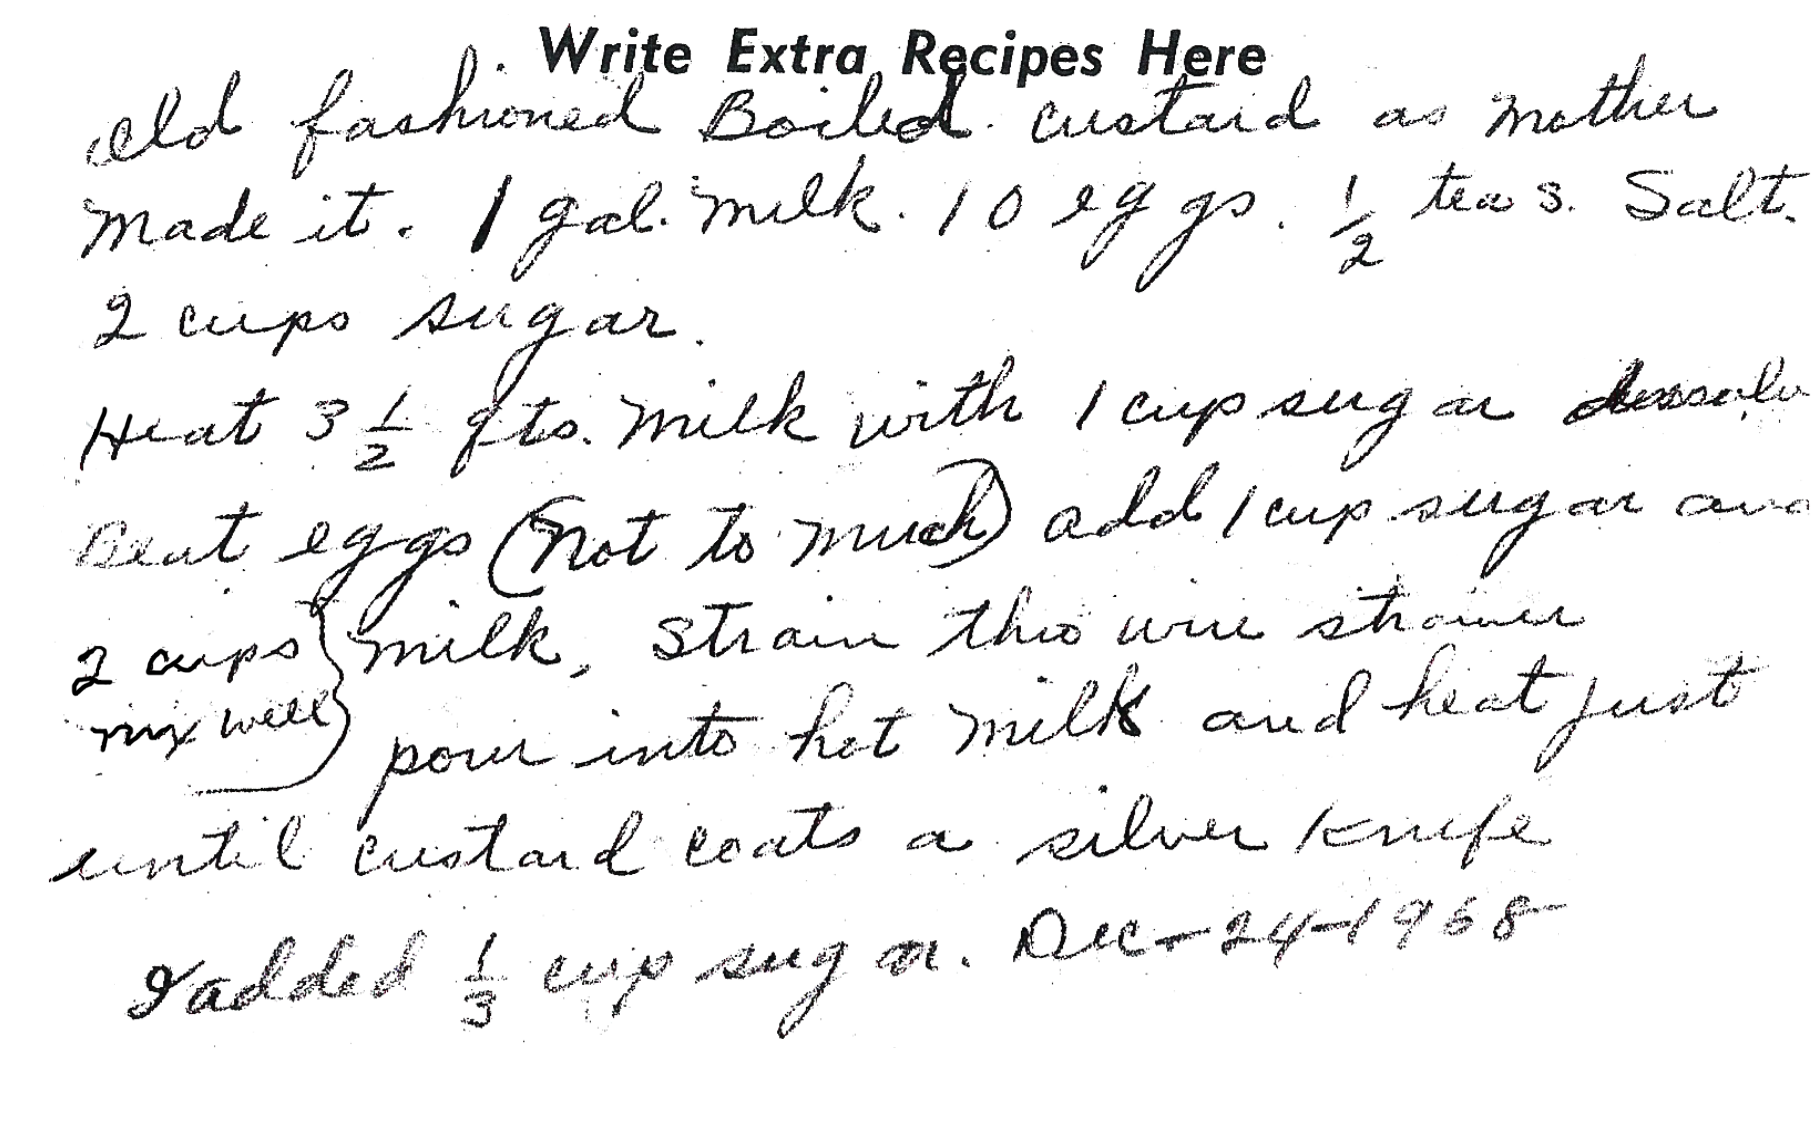 Write Extra Recipes Here
Old fashioned Boiled custard as Mother
Made it. 1 gal. Milk. 10 eggs. 1/2 teas. Salt.
2 cups sugar.
Heat 3 1/2 qts. Milk with 1 cup sugar
Beat eggs (not to much) add 1 cup sugar and
2 cups } milk, Strain thro wire strainer
mix well } pour into hot Milk and heat just
until custard coats a silver knife
I added 1/3 cup sugar. Dec-24-1968